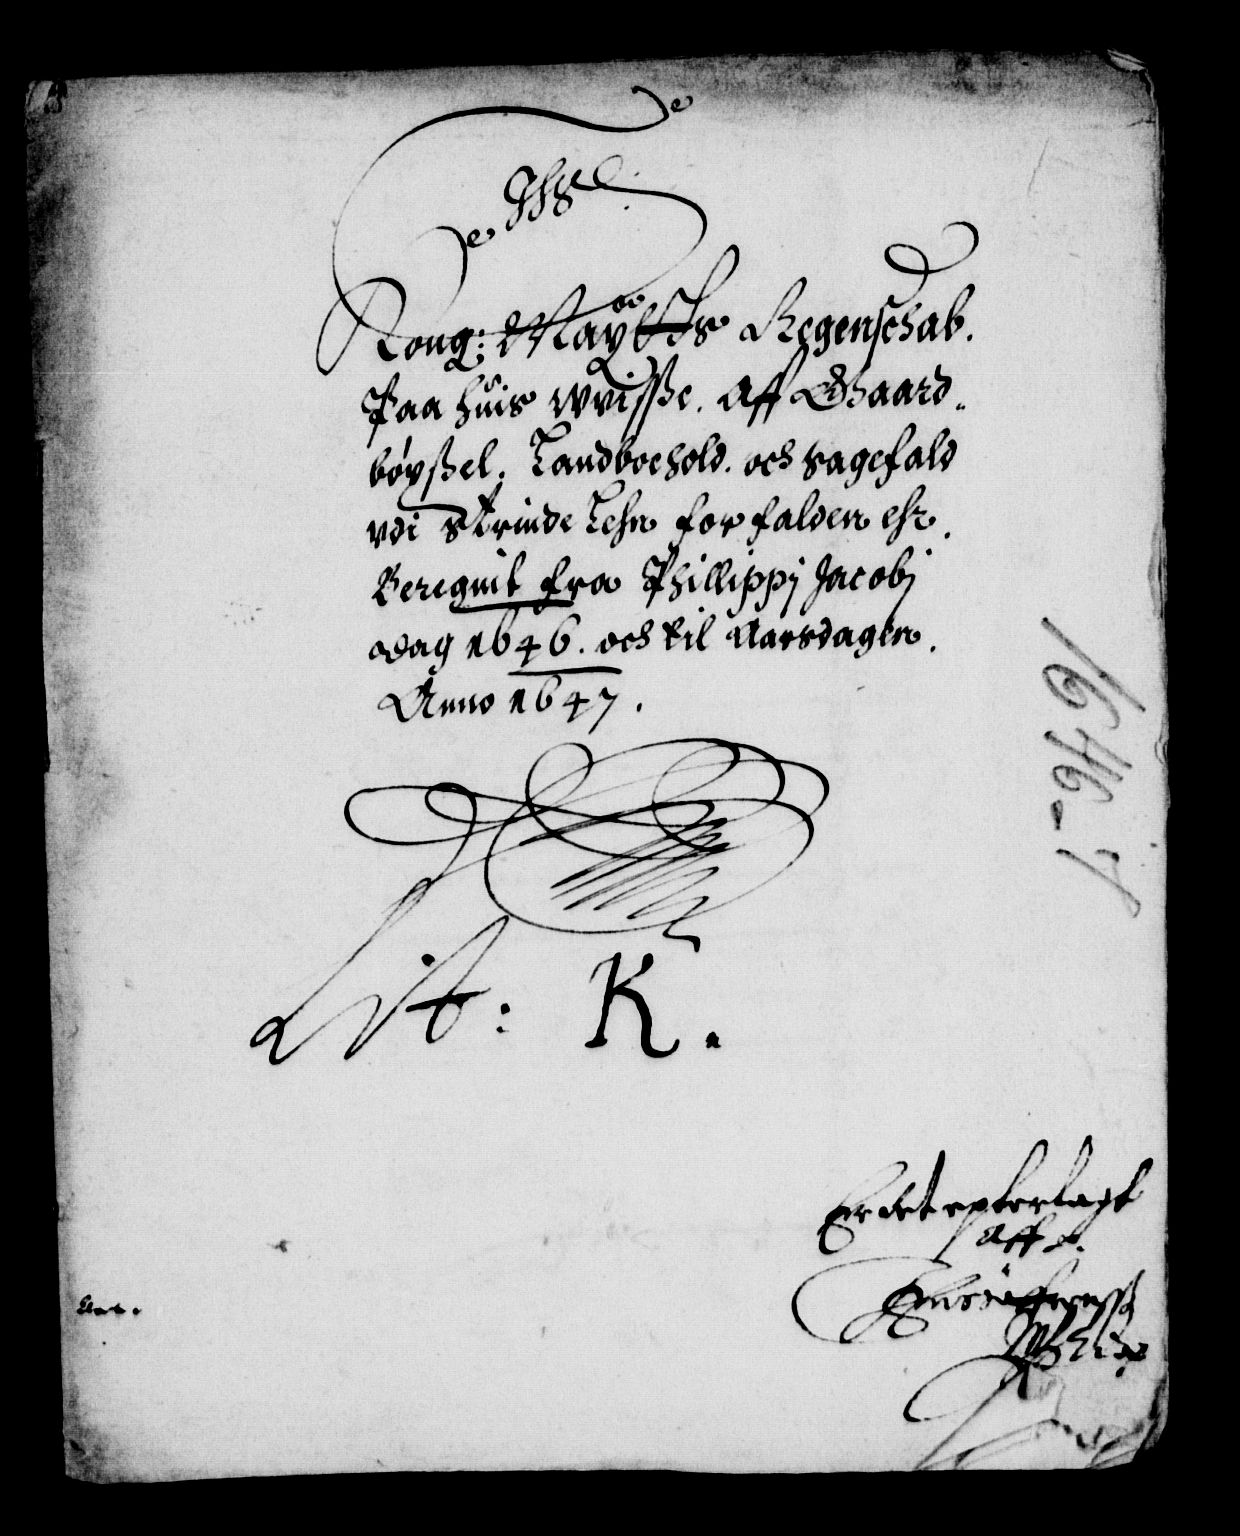 Kong: Maÿtts Regenschab.
Paa huis wvisse. Aff Gaard
bøysel. Landboehold. och sagefald
vdi Strinde Lehn forfalden ehr.
Beregnit fra Phillippj Jacobj
dag 1646. och til Aarsdagen.
Anno 1647.
Lit: K.
Er det epterlagt
Aff
1646-7